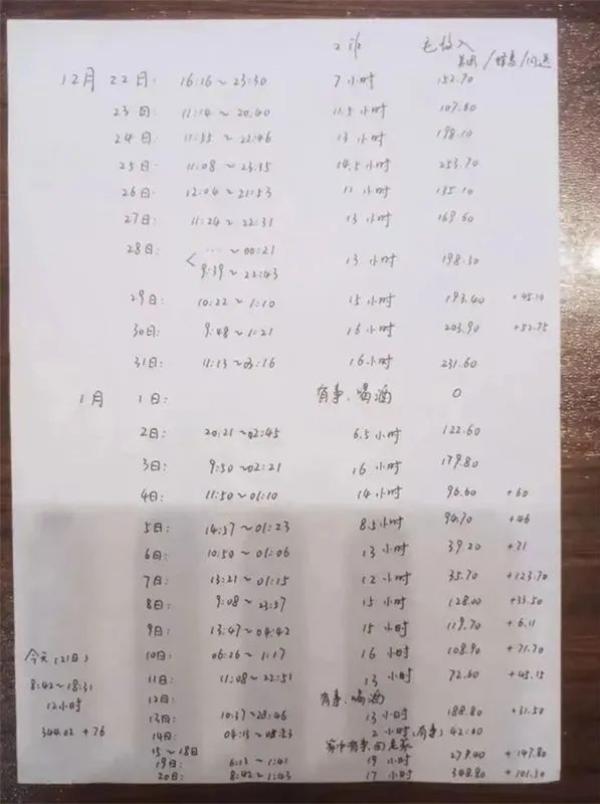 工作 毛收入
美团/蜂鸟/闪送
12月 22日: 16:16~23:30 7小时 152.70
23日: 11:14~20.40 11.5小时 107.80
24日: 11:35~22:46 13小时 198.10
25日: 11:08~23:35 14.5小时 253.70
26日: 12:04~21:53 11小时 135.10
27日: 11:24~22:31 13小时 169.60
28日: < ...~00:21
9:39~22:43 13小时 198.30
29日: 10:22~1:10 15小时 193.40 +45.10
30日: 9:48~1:21 16小时 203.90 +52.75
31日: 11:13~03:16 16小时 231.60
1月 1日: 有事、喝酒 0
2日: 20:21~02:45 6.5小时 122.60
3日: 9:50~02:21 16小时 179.80
4日: 11:50~01:10 14小时 96.60 +60
5日: 14:57~01:23 8.5小时 94.70 +46
6日: 10:50~01:06 13小时 39.20 +71
7日: 13:21~01:15 12小时 35.70 +123.70
8日: 9:08~23:57 15小时 128.00 +33.50
9日: 13:47~04:42 15小时 119.70 +6.11
今天(21日) 10日: 06:26~1:17 16小时 108.90 +71.70
8:42~18:31 11日: 11:08~22:51 13小时 72.60 +45.15
12小时 12日: 有事、喝酒
13日: 10:37~23:46 13小时 188.80 +31.50
344.02+76 14日: 2小时(有事) 42.00
15~18日 家中有事
19日: 1:41 19小时 279.40 +147.80
20日: 8:42~1:43 17小时 348.80 +101.30